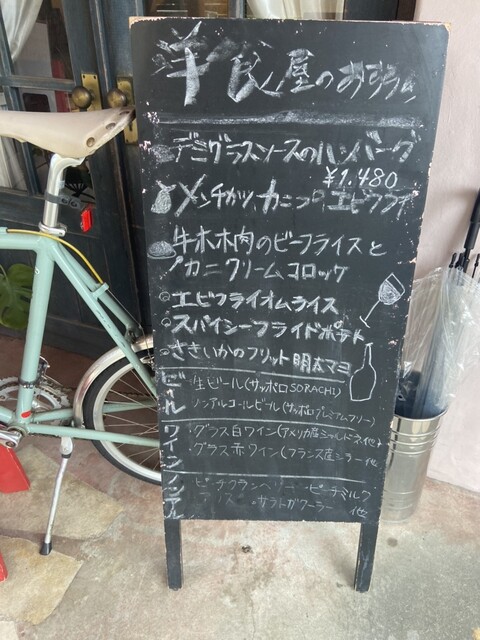 洋食屋のおすすめ
デミグラスソースのハンバーグ
¥1,480
メンチカツ カニコロ エビフライ
牛ホホ肉のビーフライスと
カニクリームコロッケ
エビフライオムライス
スパイシーフライドポテト
さきいかのフリット 明太マヨ
ビール
生ビール(サッポロSORACHI)
ノンアルコールビール(サッポロプレミアムフリー)
ワイン
グラス白ワイン(アメリカ産シャルドネ他)
グラス赤ワイン(フランス産シラー他
ノンアル
ピーチクランベリー ・ピーチミルク
・サラトガクーラー 他